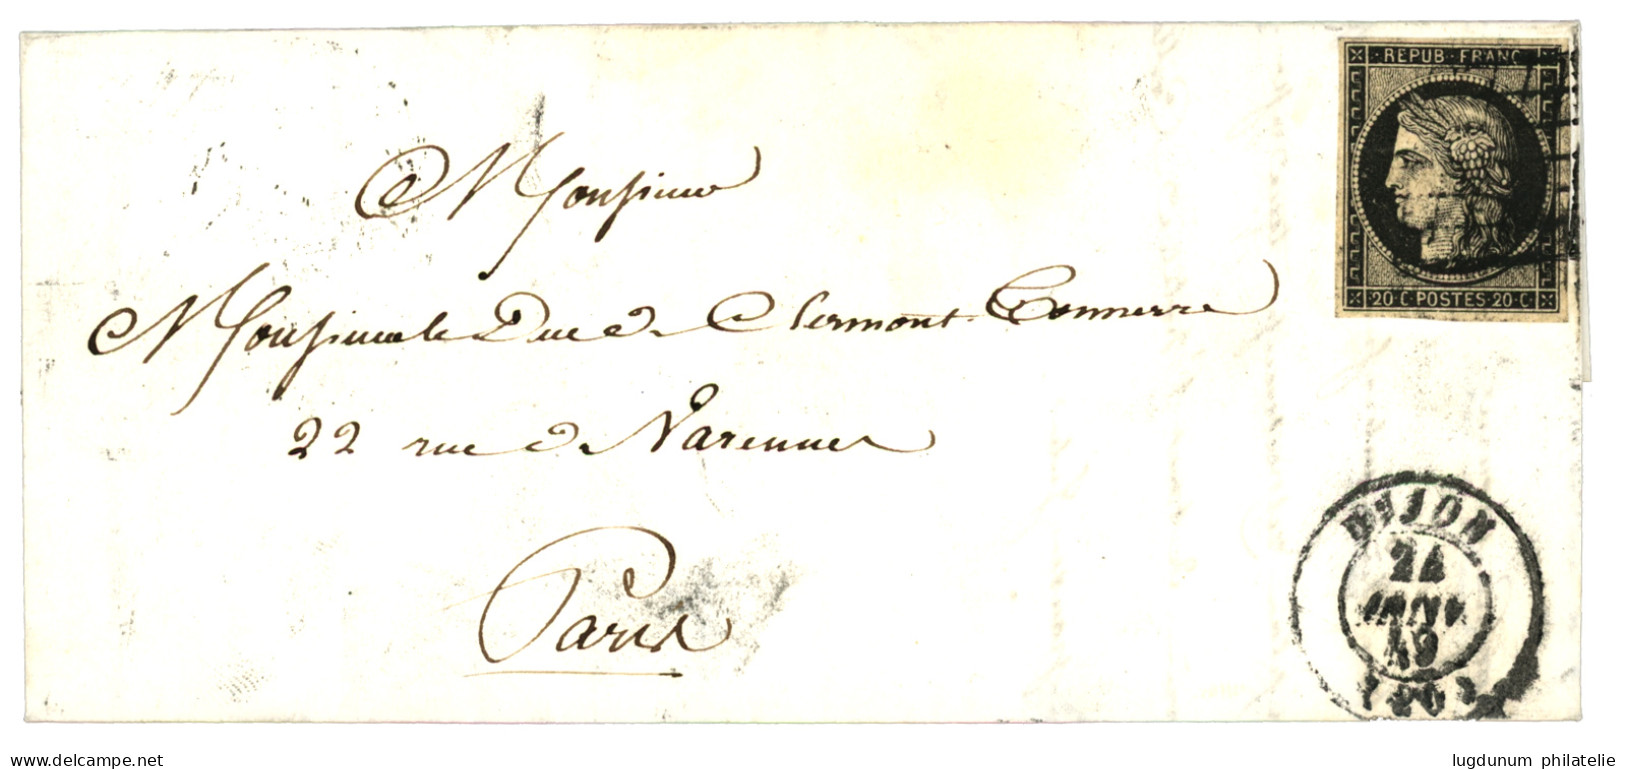 REPUB·FRANC
20·C·POSTES·20·C
Monsieur
Monsieur le Duc de Clermont Tonnerre
22 rue de Varennes
Paris
DIJON
24
JANV.
49
(20)
delcampe.net
lugdunum philatelie